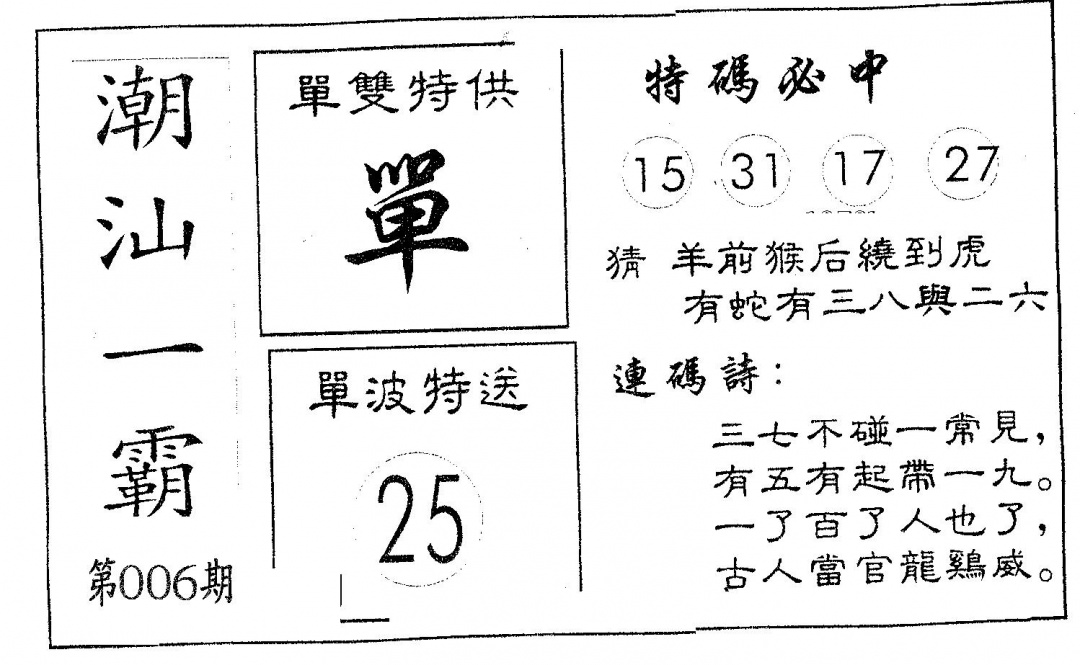 潮汕一霸
第006期
單雙特供
單
單波特送
25
特碼必中
15 31 17 27
猜 羊前猴后繞到虎
有蛇有三八與二六
連碼詩：
三七不碰一常見，
有五有起帶一九。
一了百了人也了，
古人當官龍鷄威。